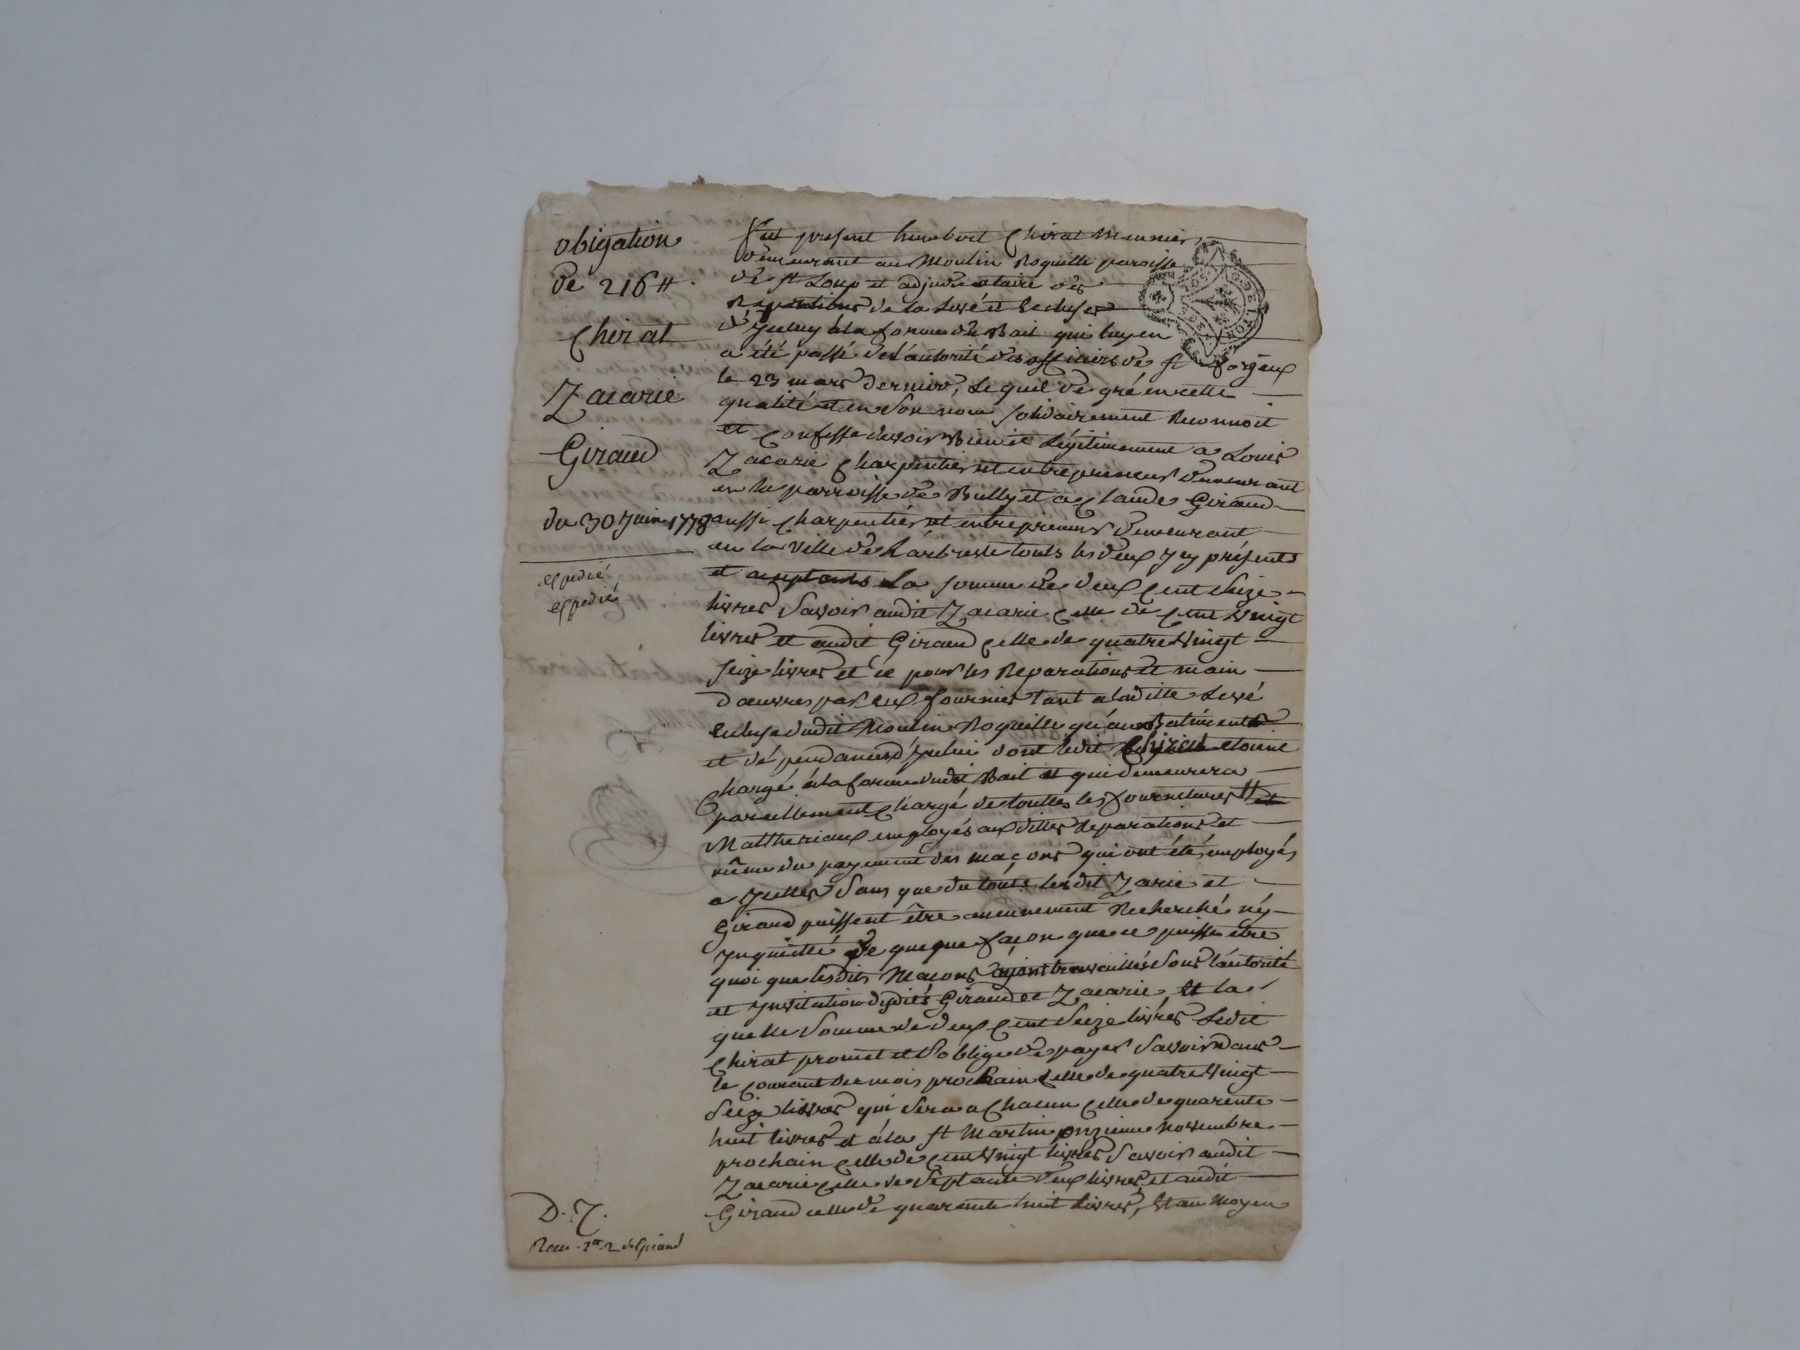 obigation
de 216 ##
Chirat
Zacarie
Giraud
du 30 Juin 1778
expedié
expedié
Fut present humbert Chirat Meunier
demeurant au Moulin Roquille paroisse
de st Loup et adjudicataire des
Reparations de la Levé et Ecluses
d'yceluy a la forme du Bail qui luy en
a été passé de l'autorité des officiers de st forgeux
le 23 mars dernier, Lequel de gré en cette
qualité et en son nom solidairement Reconnoit
et Confesse devoir Bien et Légitimement a Louis
Zacarie Charpentier et entrepreneur demeurant
en la parroisse de Bully et a Claude Giraud
aussi Charpentier et entrepreneur demeurant
en la ville de L'arbresle touts les deux y cy présents
et acceptants La somme de deux Cent Seize
livres Savoir audit Zacarie Celle de Cent Vingt
livres et audit Giraud Celle de quatre Vingt
seize livres et ce pour les Reparations et main
d'œuvres par eux fournies tant a ladite Levé
Ecluse dudit Moulin Roquille qu'au Batiments
et dépendances d'ycelui dont ledit Chirat etoint
Chargé a la forme dudit Bail et qui demeurera
pareillement Chargé de touttes les fournitures et
Matheriaux employés aux dittes Reparations et
même du payement des maçons qui ont étés employés
a ycelles Sans que du tout lesdit Zarie et
Giraud puissent être aucunement Recherché ny
ynquietté de queque façon que ce puisse etre
quoi que lesdits Macons ayont travaillés Sous l'autorité
et ynvitation desdits Giraud et Zacarie Et la
quelle Somme de deux Cent Seize livres Ledit
Chirat promet et S'oblige de payer Savoir dans
le Courant du mois prochain Celle de quatre Vingt
Seize livres qui Sera a Chacun Celle de quarente
huit livres et a la st Martin onzieme novembre
prochain Celle de Cent Vingt livres Savoir audit
Zacarie Celle de Septante deux livres et audit
Giraud celle de quarante huit livres, Et au Moyen
D. Z.